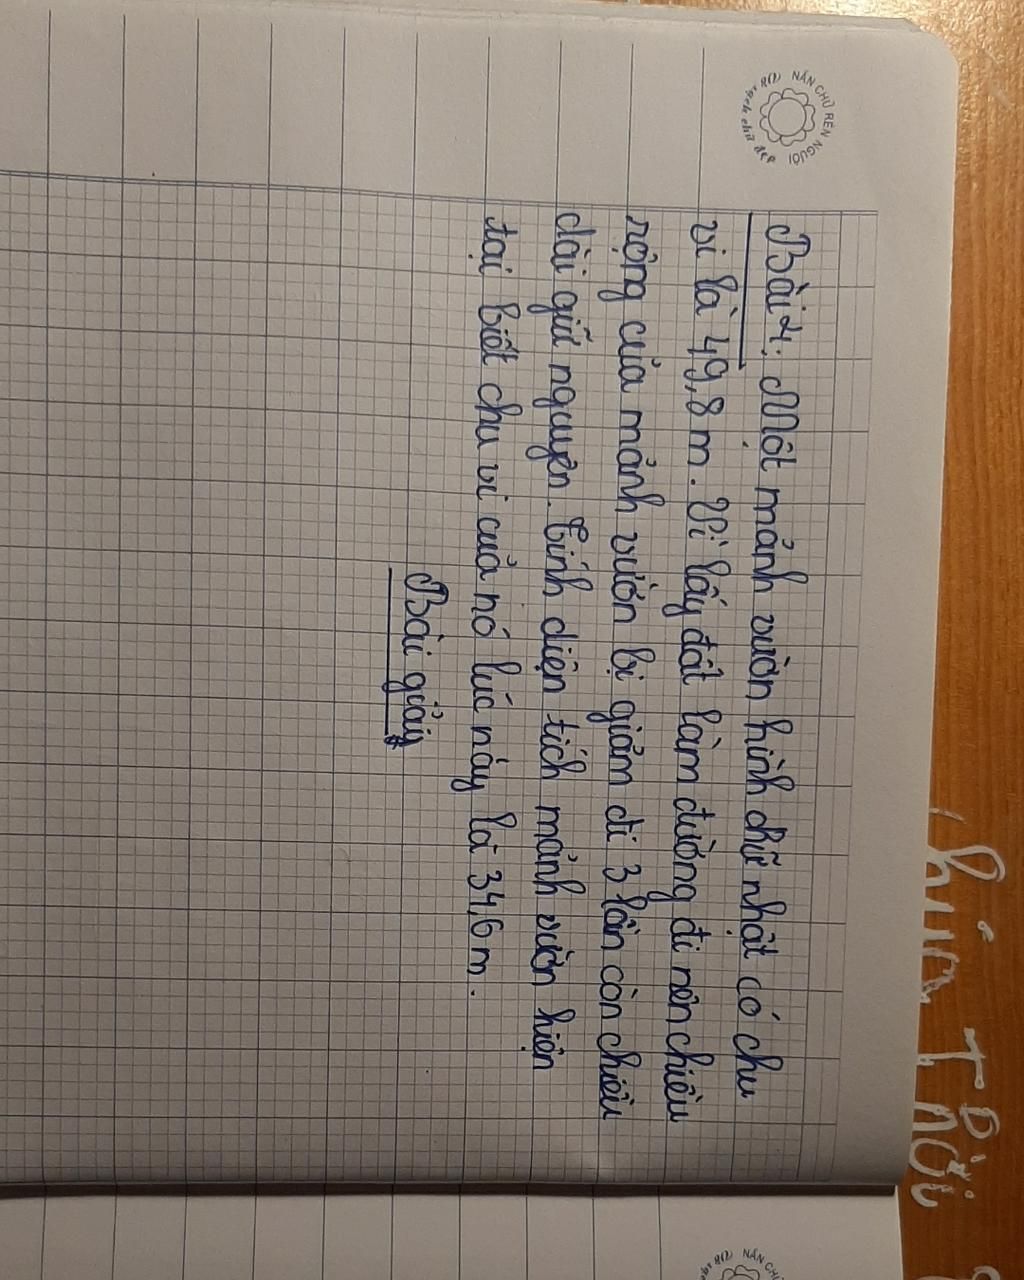 NẮN CHỮ RÈN NGƯỜI
Bài 4: Một mảnh vườn hình chữ nhật có chu
vi là 49,8 m. Vì lấy đất làm đường đi nên chiều
rộng của mảnh vườn bị giảm đi 3 lần còn chiều
dài giữ nguyên. Tính diện tích mảnh vườn hiện
tại biết chu vi của nó lúc này là 34,6 m.
Bài giải
NẮN CHỮ